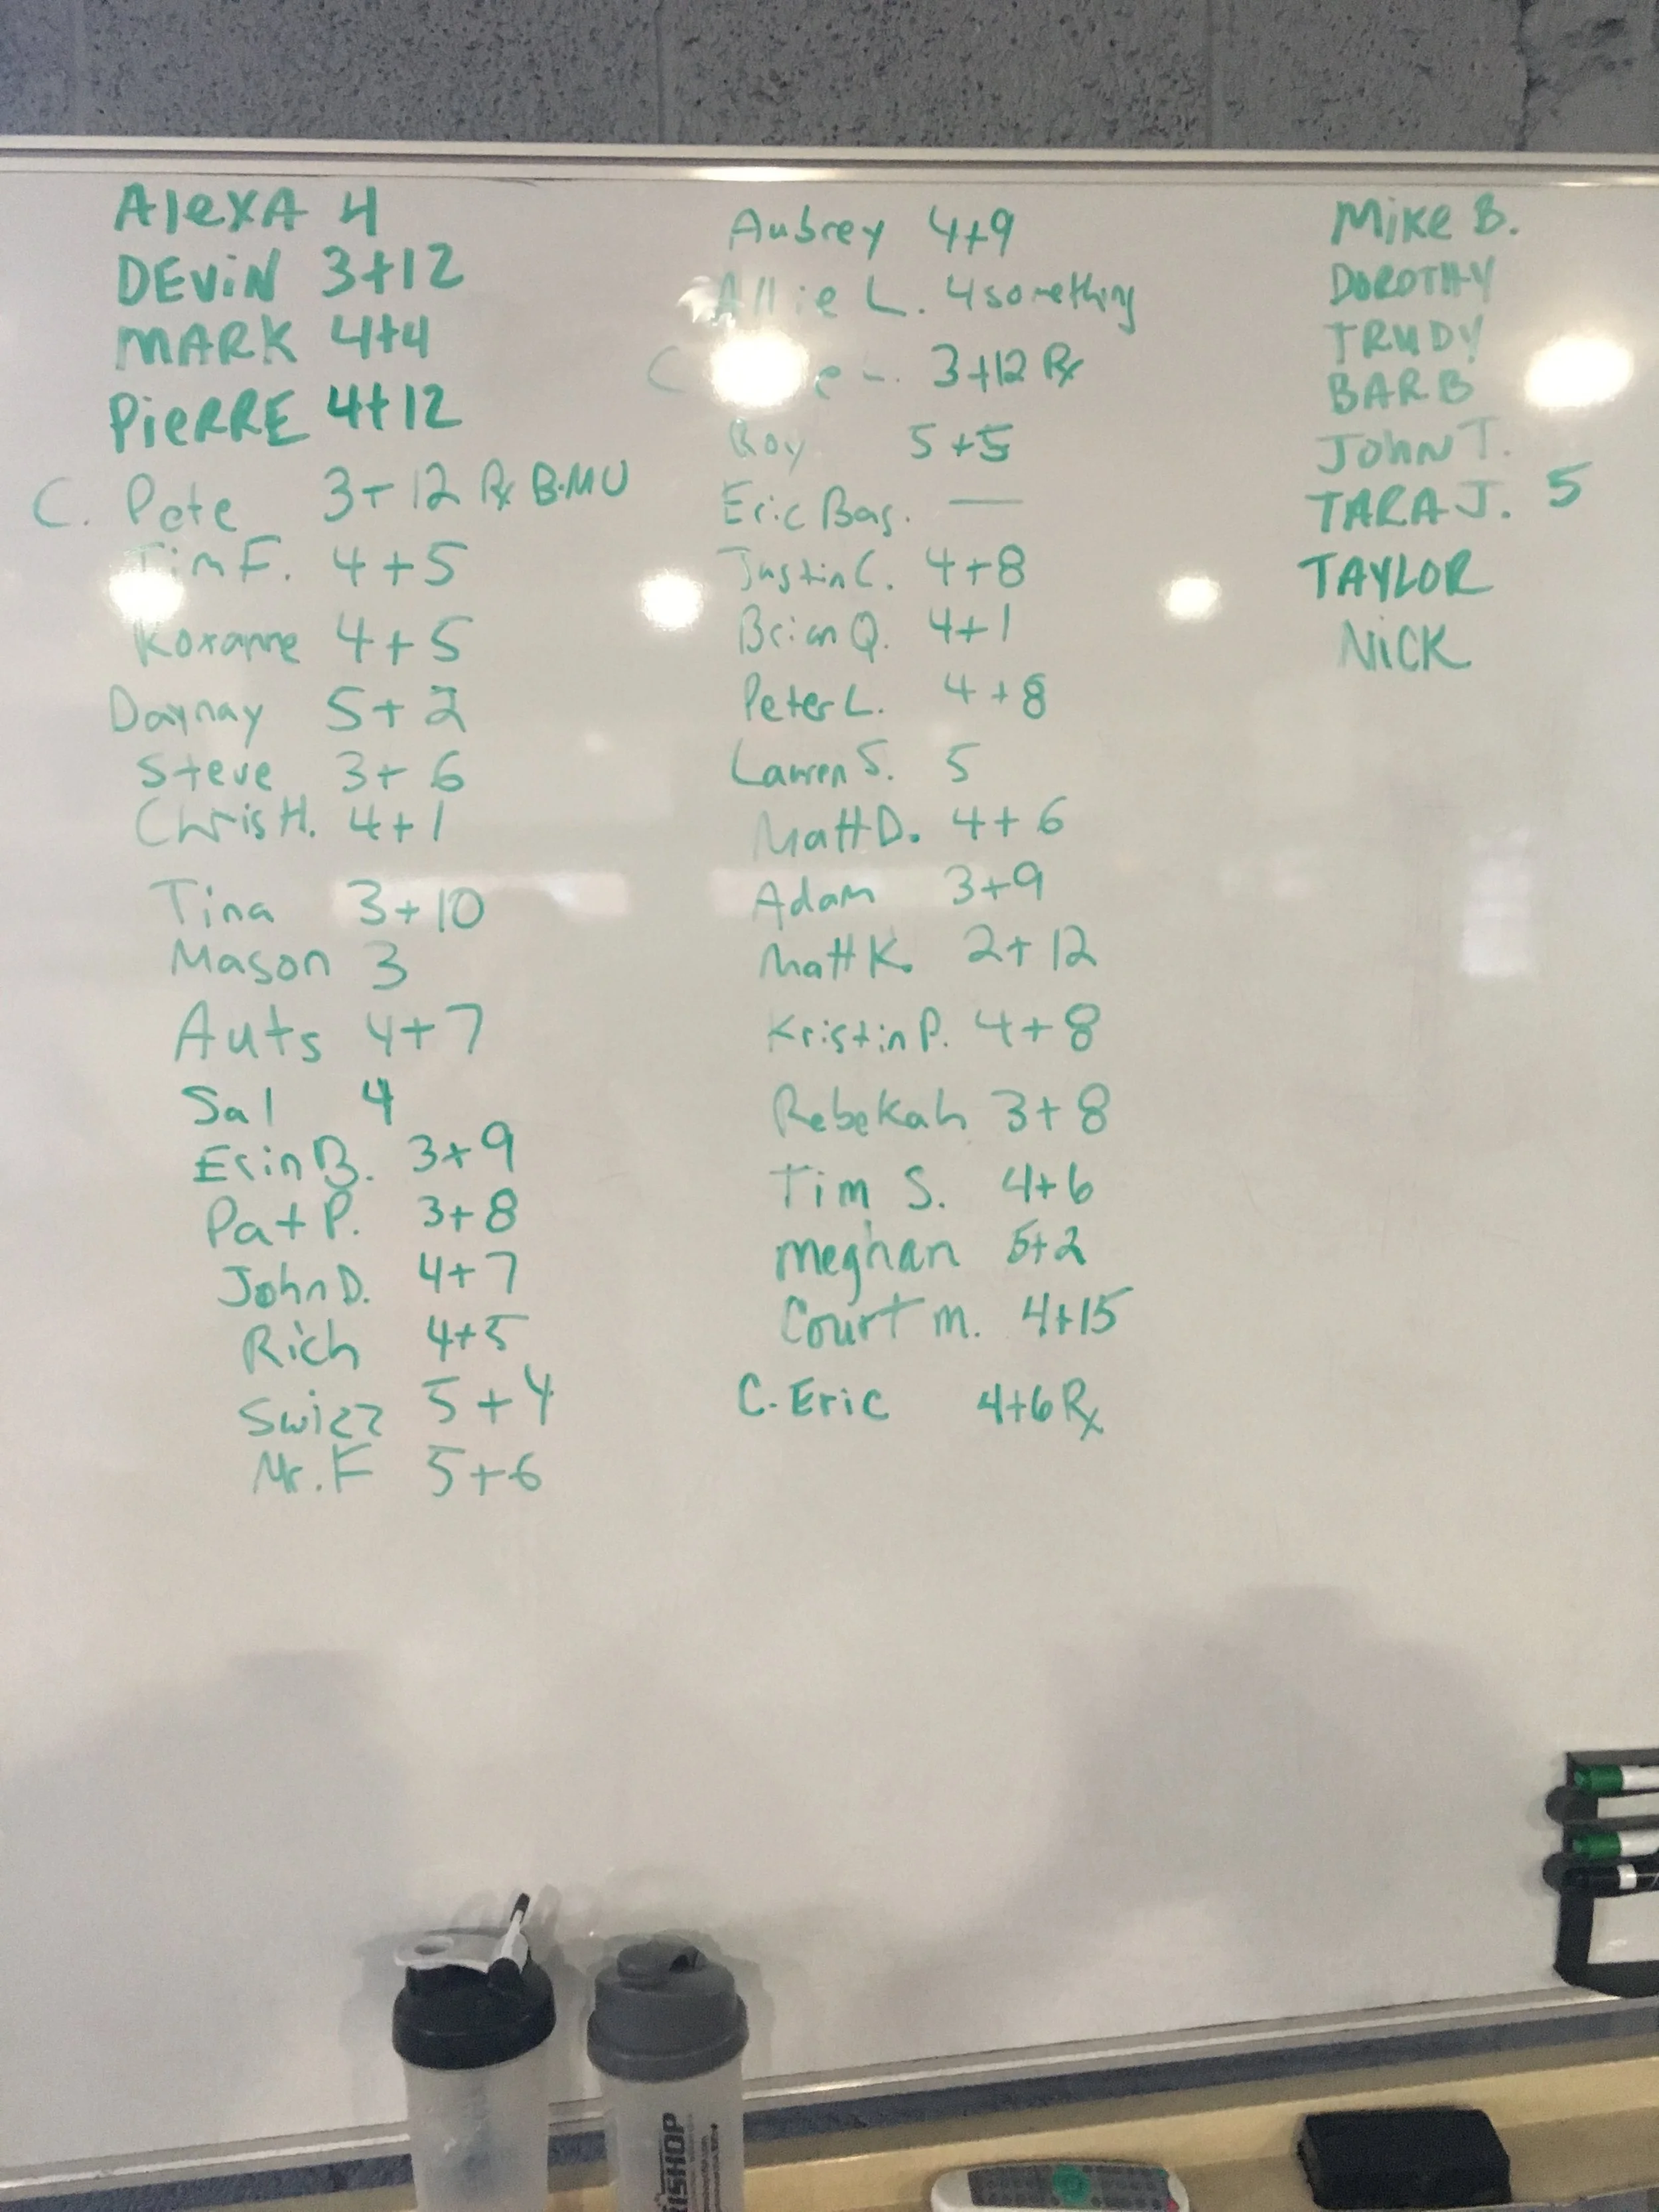 Alexa 4
DEViN 3+12
MARK 4+4
PieRRE 4+12
C. Pete 3+12 Rx B.MU
Tim F. 4+5
Roxanne 4+5
Daynay 5+2
Steve 3+6
Chris H. 4+1
Tina 3+10
Mason 3
Auts 4+7
Sal 4
Erin B. 3+9
Pat P. 3+8
John D. 4+7
Rich 4+5
Swizz 5+4
Mr. F 5+6
Aubrey 4+9
Allie L. 4 something
3+12 Rx
Roy 5+5
Eric Bas. —
Justin C. 4+8
Brian Q. 4+1
Peter L. 4+8
Lauren S. 5
Matt D. 4+6
Adam 3+9
Matt K. 2+12
Kristin P. 4+8
Rebekah 3+8
Tim S. 4+6
Meghan 5+2
Court M. 4+15
C. Eric 4+6 Rx
Mike B.
DOROTHY
TRUDY
BARB
John T.
TARA J. 5
TAYLOR
NiCK